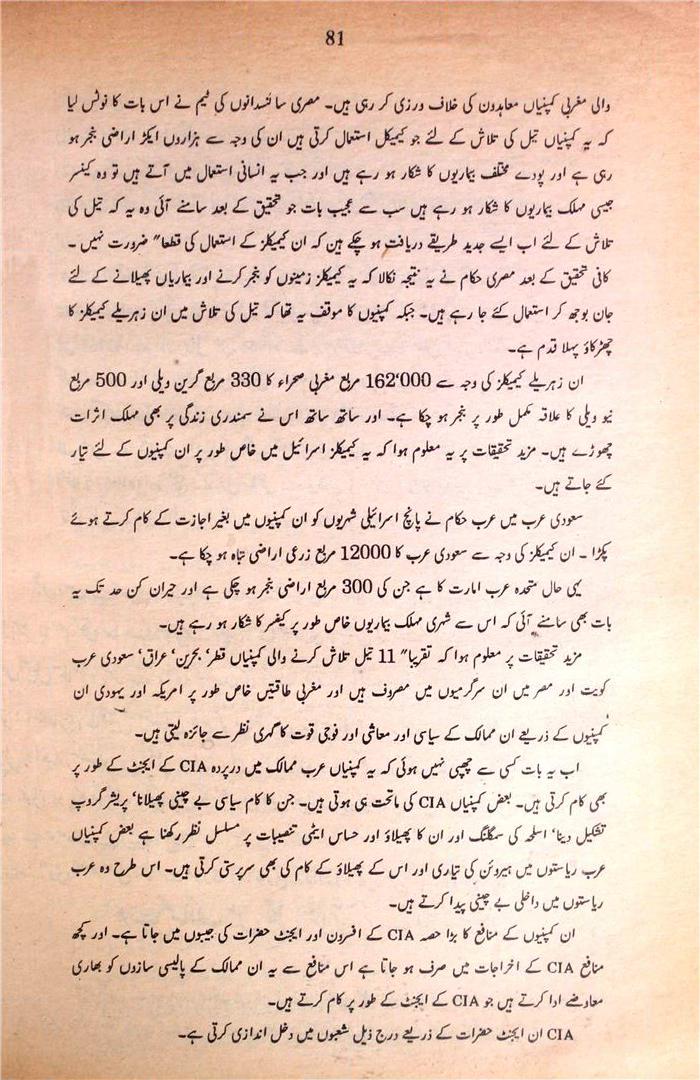 81
والی مغربی کمپنیاں معاہدون کی خلاف ورزی کر رہی ہیں۔ مصری سائنسدانوں کی ٹیم نے اس بات کا نوٹس لیا
کہ یہ کمپنیاں تیل کی تلاش کے لئے جو کیمیکل استعمال کرتی ہیں ان کی وجہ سے ہزاروں ایکڑ اراضی بنجر ہو
رہی ہے اور پودے مختلف بیماریوں کا شکار ہو رہے ہیں اور جب یہ انسانی استعمال میں آتے ہیں تو وہ کینسر
جیسی مہلک بیماریوں کا شکار ہو رہے ہیں سب سے عجیب بات جو تحقیق کے بعد سامنے آئی وہ یہ کہ تیل کی
تلاش کے لئے اب ایسے جدید طریقے دریافت ہو چکے ہین کہ ان کیمیکلز کے استعمال کی قطعا" ضرورت نہیں ۔
کافی تحقیق کے بعد مصری حکام نے یہ نتیجہ نکالا کہ یہ کیمیکلز زمینوں کو بنجر کرنے اور بیماریاں پھیلانے کے لئے
جان بوجھ کر استعمال کئے جا رہے ہیں۔ جبکہ کمپنیوں کا موقف یہ تھا کہ تیل کی تلاش میں ان زہریلے کیمیکلز کا
چھڑکاؤ پہلا قدم ہے۔
ان زہریلے کیمیکلز کی وجہ سے 162‘000 مربع مغربی صحراء کا 330 مربع گرین ویلی اور 500 مربع
نیو ویلی کا علاقہ مکمل طور پر بنجر ہو چکا ہے۔ اور ساتھ ساتھ اس نے سمندری زندگی پر بھی مہلک اثرات
چھوڑے ہیں۔ مزید تحقیقات پر یہ معلوم ہوا کہ یہ کیمیکلز اسرائیل میں خاص طور پر ان کمپنیوں کے لئے تیار
کئے جاتے ہیں۔
سعودی عرب میں عرب حکام نے پانچ اسرائیلی شہریوں کو ان کمپنیوں میں بغیر اجازت کے کام کرتے ہوئے
پکڑا ۔ ان کیمیکلز کی وجہ سے سعودی عرب کا 12000 مربع زرعی اراضی تباہ ہو چکا ہے۔
یہی حال متحدہ عرب امارت کا ہے جن کی 300 مربع اراضی بنجر ہو چکی ہے اور حیران کن حد تک یہ
بات بھی سامنے آئی کہ اس سے شہری مہلک بیماریوں خاص طور پر کینسر کا شکار ہو رہے ہیں۔
مزید تحقیقات پر معلوم ہوا کہ تقریبا" 11 تیل تلاش کرنے والی کمپنیاں قطر‘ بحرین‘ عراق‘ سعودی عرب
کویت اور مصر میں ان سرگرمیوں میں مصروف ہیں اور مغربی طاقتیں خاص طور پر امریکہ اور یہودی ان
کمپنیوں کے ذریعے ان ممالک کے سیاسی اور معاشی اور فوجی قوت کا گہری نظر سے جائزہ لیتی ہیں۔
اب یہ بات کسی سے چھپی نہیں ہوئی کہ یہ کمپنیاں عرب ممالک میں درپردہ CIA کے ایجنٹ کے طور پر
بھی کام کرتی ہیں۔ بعض کمپنیاں CIA کی ماتحت ہی ہوتی ہیں۔ جن کا کام سیاسی بے چینی پھیلانا‘ پریشر گروپ
تشکیل دینا‘ اسلحہ کی سمگلنگ اور ان کا پھیلاؤ اور حساس ایٹمی تنصیبات پر مسلسل نظر رکھنا ہے بعض کمپنیاں
عرب ریاستوں میں ہیروئن کی تیاری اور اس کے پھیلاؤ کے کام کی بھی سرپرستی کرتی ہیں۔ اس طرح وہ عرب
ریاستوں میں داخلی بے چینی پیدا کرتے ہیں۔
ان کمپنیوں کے منافع کا بڑا حصہ CIA کے افسرون اور ایجنٹ حضرات کی جیبوں میں جاتا ہے۔ اور کچھ
منافع CIA کے اخراجات میں صرف ہو جاتا ہے اس منافع سے یہ ان ممالک کے پالیسی سازوں کو بھاری
معاوضے ادا کرتے ہیں جو CIA کے ایجنٹ کے طور پر کام کرتے ہیں۔
CIA ان ایجنٹ حضرات کے ذریعے درج ذیل شعبوں میں دخل اندازی کرتی ہے۔